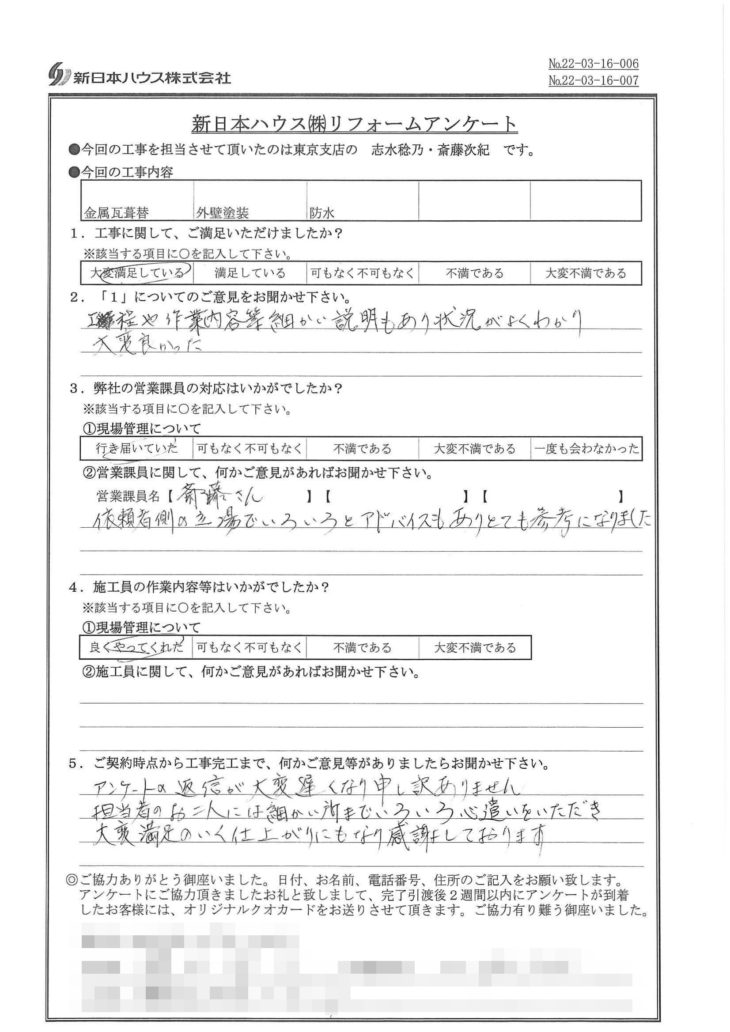 新日本ハウス株式会社
No.22-03-16-006
No.22-03-16-007
新日本ハウス㈱リフォームアンケート
●今回の工事を担当させて頂いたのは東京支店の 志水稔乃・斎藤次紀 です。
●今回の工事内容
金属瓦葺替 外壁塗装 防水
1．工事に関して、ご満足いただけましたか？
※該当する項目に○を記入して下さい。
大変満足している 満足している 可もなく不可もなく 不満である 大変不満である
2．「1」についてのご意見をお聞かせ下さい。
工程や作業内容等細かい説明もあり状況がよくわかり
大変良かった
3．弊社の営業課員の対応はいかがでしたか？
※該当する項目に○を記入して下さい。
①現場管理について
行き届いていた 可もなく不可もなく 不満である 大変不満である 一度も会わなかった
②営業課員に関して、何かご意見があればお聞かせ下さい。
営業課員名【 斎藤さん 】【 】【 】
依頼者側の立場でいろいろとアドバイスもありとても参考になりました
4．施工員の作業内容等はいかがでしたか？
※該当する項目に○を記入して下さい。
①現場管理について
良くやってくれた 可もなく不可もなく 不満である 大変不満である
②施工員に関して、何かご意見があればお聞かせ下さい。
5．ご契約時点から工事完工まで、何かご意見等がありましたらお聞かせ下さい。
アンケートの返信が大変遅くなり申し訳ありません
担当者のお二人には細かい所までいろいろ心遣いをいただき
大変満足のいく仕上がりにもなり感謝しております
◎ご協力ありがとう御座いました。日付、お名前、電話番号、住所のご記入をお願い致します。
アンケートにご協力頂きましたお礼と致しまして、完了引渡後2週間以内にアンケートが到着
したお客様には、オリジナルクオカードをお送りさせて頂きます。ご協力有り難う御座いました。